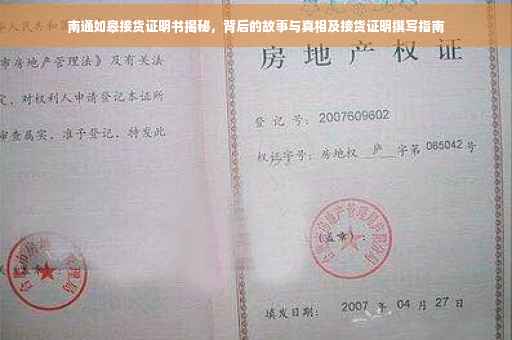 南通如意接货证明书揭秘，背后的故事与真相及接货证明撰写指南
华人民共和国
市房地产管理法》及有关法
定，对权利人申请登记本证所
审查属实，准予登记，特发此
房地产权证
登记号：2007609602
权证字号：房地权 庐 字第 085042 号
房地产管理
(盖章)：
填发日期：2007 年 04 月 27 日